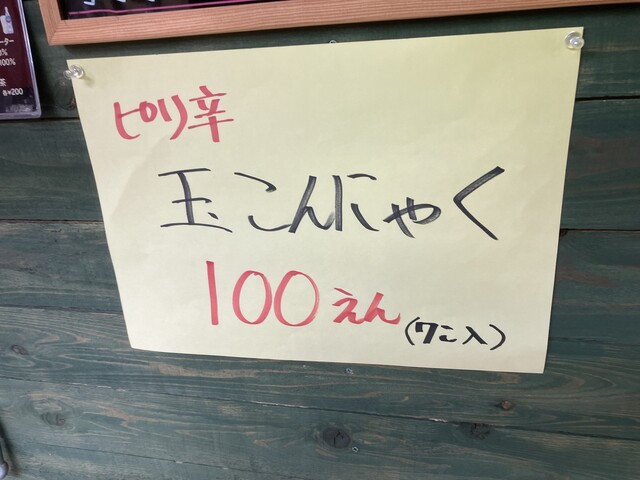 ピリ辛
玉こんにゃく
100えん
(7こ入)
茶
各¥200